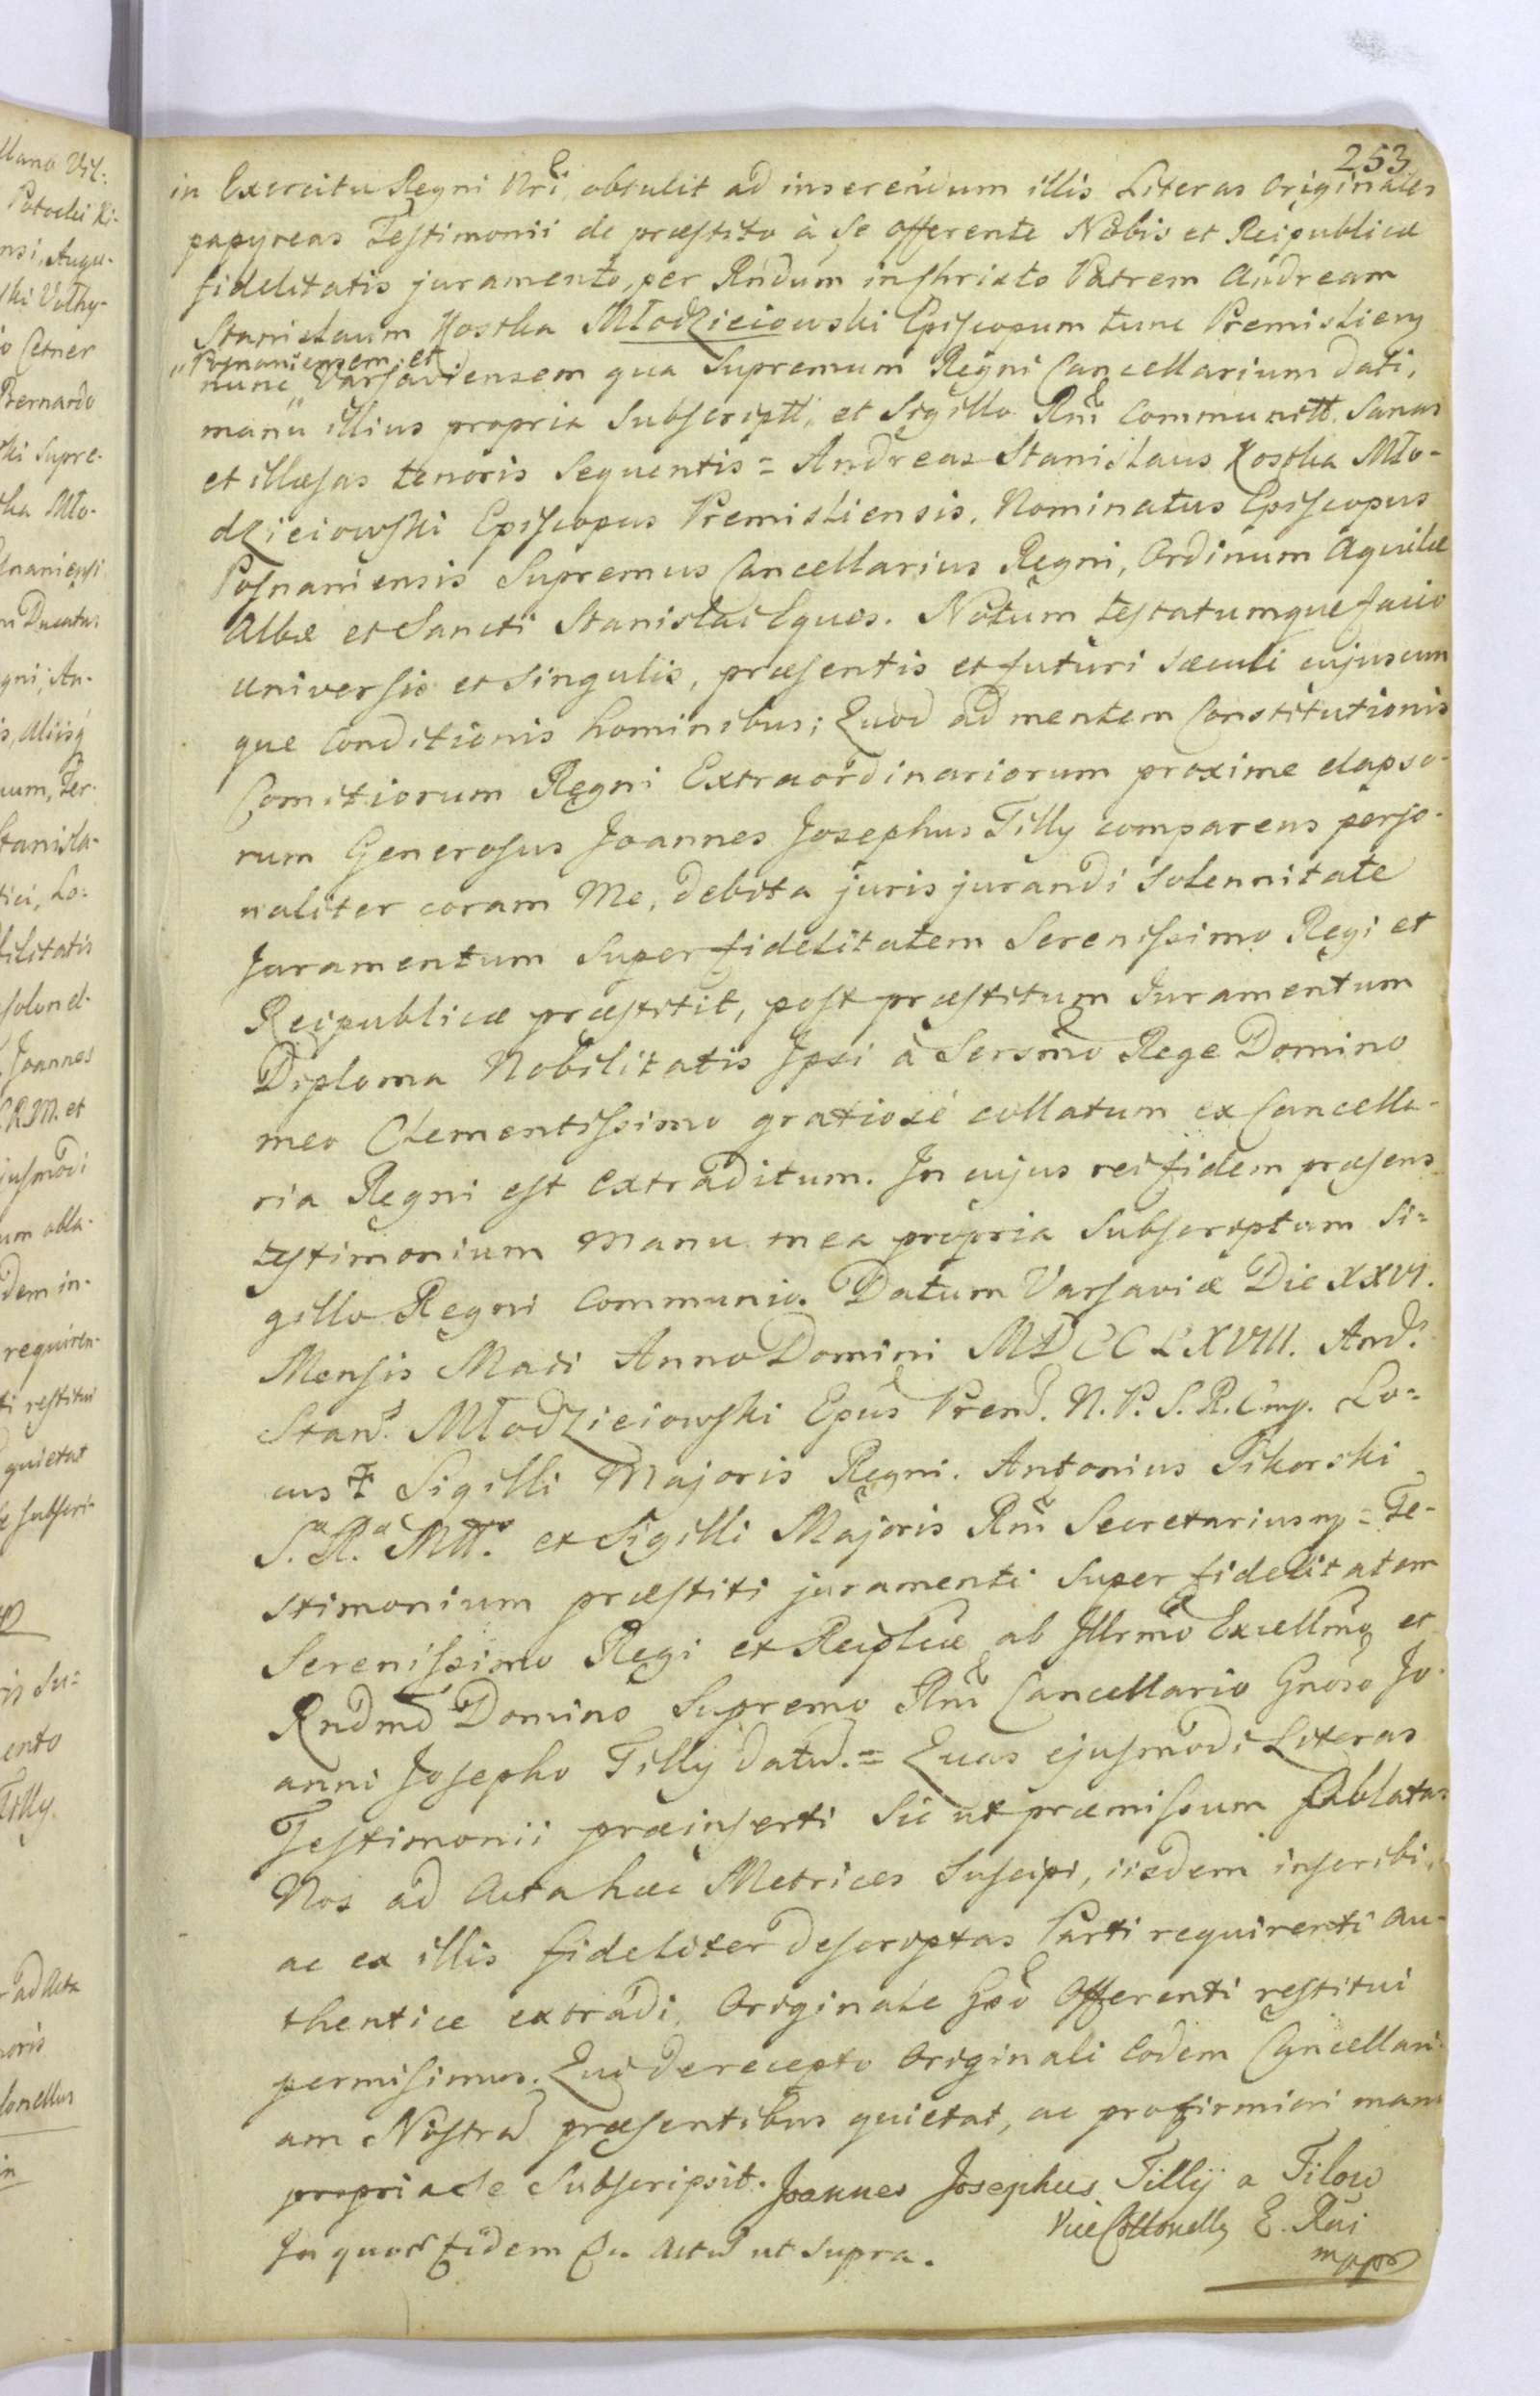 253
in Exercitu Regni Nri, obtulit ad inserendum illis Literas Originales
papyreas Testimonii de præstito à se offerente Nobis et Reipublicæ
fidelitatis juramento, per Rndum in Christo Patrem Andream
Stanislaum Kostka Młodzieiowski Episcopum tunc Premislieng
"Posnaniensem et
nunc "Varsaviensem qua Supremum Regni Cancellarium dati,
manu illius propria Subscriptt, et Sigillo Rni communitt. Sanas
et illæsas tenoris Sequentis = Andreas Stanislaus Kostka Mło-
dzieiowski Episcopus Premisliensis, Nominatus Episcopus
Posnaniensis Supremus Cancellarius Regni, Ordinum Aquilæ
Albæ et Sancti Stanislai Eques. Notum testatumque facio
Universis et Singulis, præsentis et futuri sæculi cujuscun
que Conditionis hominibus; Quod ad mentem Constitutionis
Comitiorum Regni Extraordinariorum proxime elapso-
rum Generosus Joannes Josephus Tilly comparens perso-
naliter coram Me, debita juris jurandi Solennitate
Juramentum Super fidelitatem Serenissimo Regi et
Reipublicæ præstitit, post præstitum Juramentum
Diploma Nobilitatis Ipsi à Sersmo Rege Domino
meo Clementissimo gratiosè collatum ex Cancella-
ria Regni est extraditum. In cujus rei fidem præsens
testimonium manu mea propria Subscriptum Si=
gillo Regni communio. Datum Varsaviæ Die XXVI.
Mensis Maii Anno Domini MDCCLXVIII. And.
Stans. Młodzieiowski Epus Prem. N. P. S. R. C mp. Lo=
cus ‡ Sigilli Majoris Regni. Antonius Sikorski
S. R. Mtt. et Sigilli Majoris Rni Secretarius mp = Te-
stimonium præstiti juramenti Super fidelitatem
Serenissimo Regi et Reiplicæ ab Illrmo Excellmo et
Rndmo Domino Supremo Rni Cancellario Gnoso Jo-
anni Josepho Tilly datu. = Quas ejusmodi Literas
Testimonii præinserti Sic ut præmissum oblatas
Nos ad Acta hæc Metrices Suscipi, iisdem inscribi,
ac ex illis fideliter descriptas Parti requirenti au-
thentice extradi, Originale Gso Offerenti restitui
permisimus. Qui de recepto Originali eodem Cancellari-
am Nostra præsentibus quietat, ac pro firmiori manu
propria Se Subscripsit. Joannes Josephus Tillÿ a Tilow
Vice Collonelly E. Rni
mppr
In quor fidem Ex. Actu ut Supra.